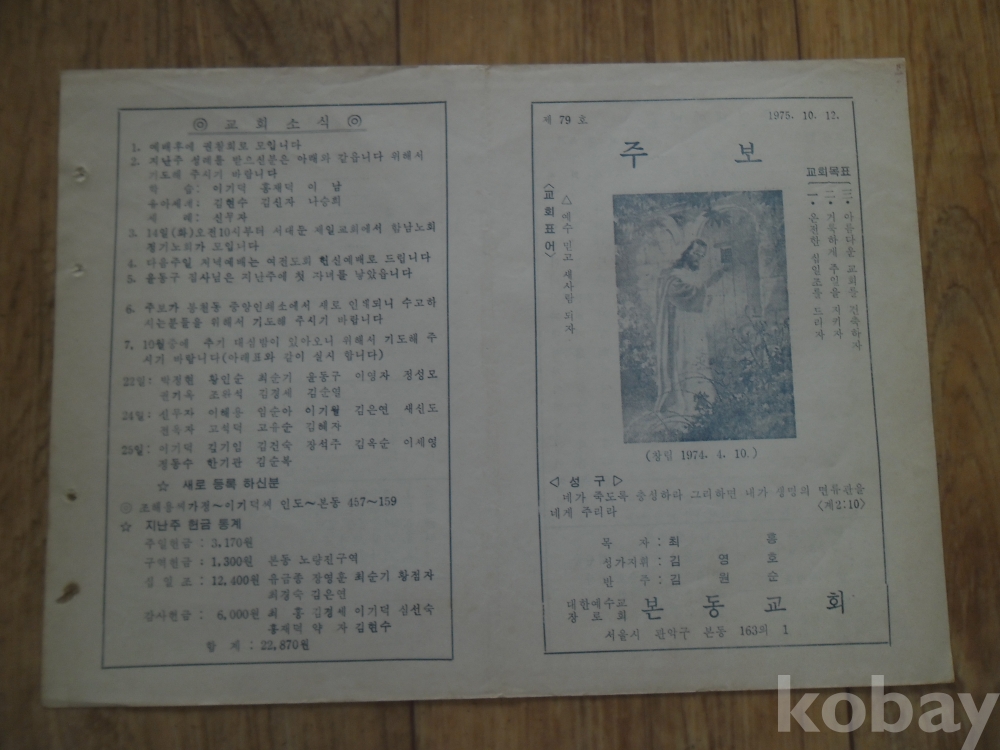 ◎ 교회소식 ◎
1. 예배후에 권찰회로 모입니다
2. 지난주 성례를 받으신분은 아래와 같읍니다 위해서
기도해 주시기 바랍니다
학 습: 이기덕 홍재덕 이 남
유아세례: 김현수 김신자 나승희
세 례: 신우자
3. 14일(화)오전10시부터 서대문 제일교회에서 함남노회
정기노회가 모입니다
4. 다음주일 저녁예배는 여전도회 헌신예배로 드립니다
5. 윤동구 집사님은 지난주에 첫 자녀를 낳았읍니다
6. 주보가 봉원동 중앙인쇄소에서 새로 인쇄되니 수고하
시는분들을 위해서 기도해 주시기 바랍니다
7. 10월중에 추기 대심방이 있아오니 위해서 기도해 주
시기 바랍니다(아래표와 같이 실시 합니다)
황인순 최순기 윤동구 이영자 정성모
김경세
24일: 신우자 이해용 임순아 이기월 김은연 채신도
고석덕 고유순 김혜자
25일: 이기덕 김기임 김건숙 장석주 김옥순 이세영
정동수 한기관 김순복
☆ 새로 등록 하신분
이기덕씨 인도~본동 457~159
☆ 지난주 헌금 통계
주일헌금 : 3,170원
구역헌금 : 1,300원 본동 노량진구역
십 일 조 : 12,400원 윤금중 장영훈 최순기 황점자
최경숙 김은연
감사헌금 : 6,000원 최 홍 김경세 이기덕 심선숙
홍재덕 약 자 김현수
합 계 : 22,870원
제 79 호
1975. 10. 12.
주 보
교회목표
一 · 온전한 십일조를 드리자
二 · 거룩하게 주일을 지키자
三 · 아름다운 교회를 건축하자
<교회표어>
△ 예수 믿고 새사람 되자
(창일 1974. 4. 10.)
◁ 성 구 ▷
네가 죽도록 충성하라 그리하면 내가 생명의 면류관을
네게 주리라 <계2:10>
목 자 : 최 홍
성가지휘 : 김 영 호
반 주 : 김 원 순
대한예수교
장로회
본 동 교 회
서울시 관악구 본동 163의 1
kobay